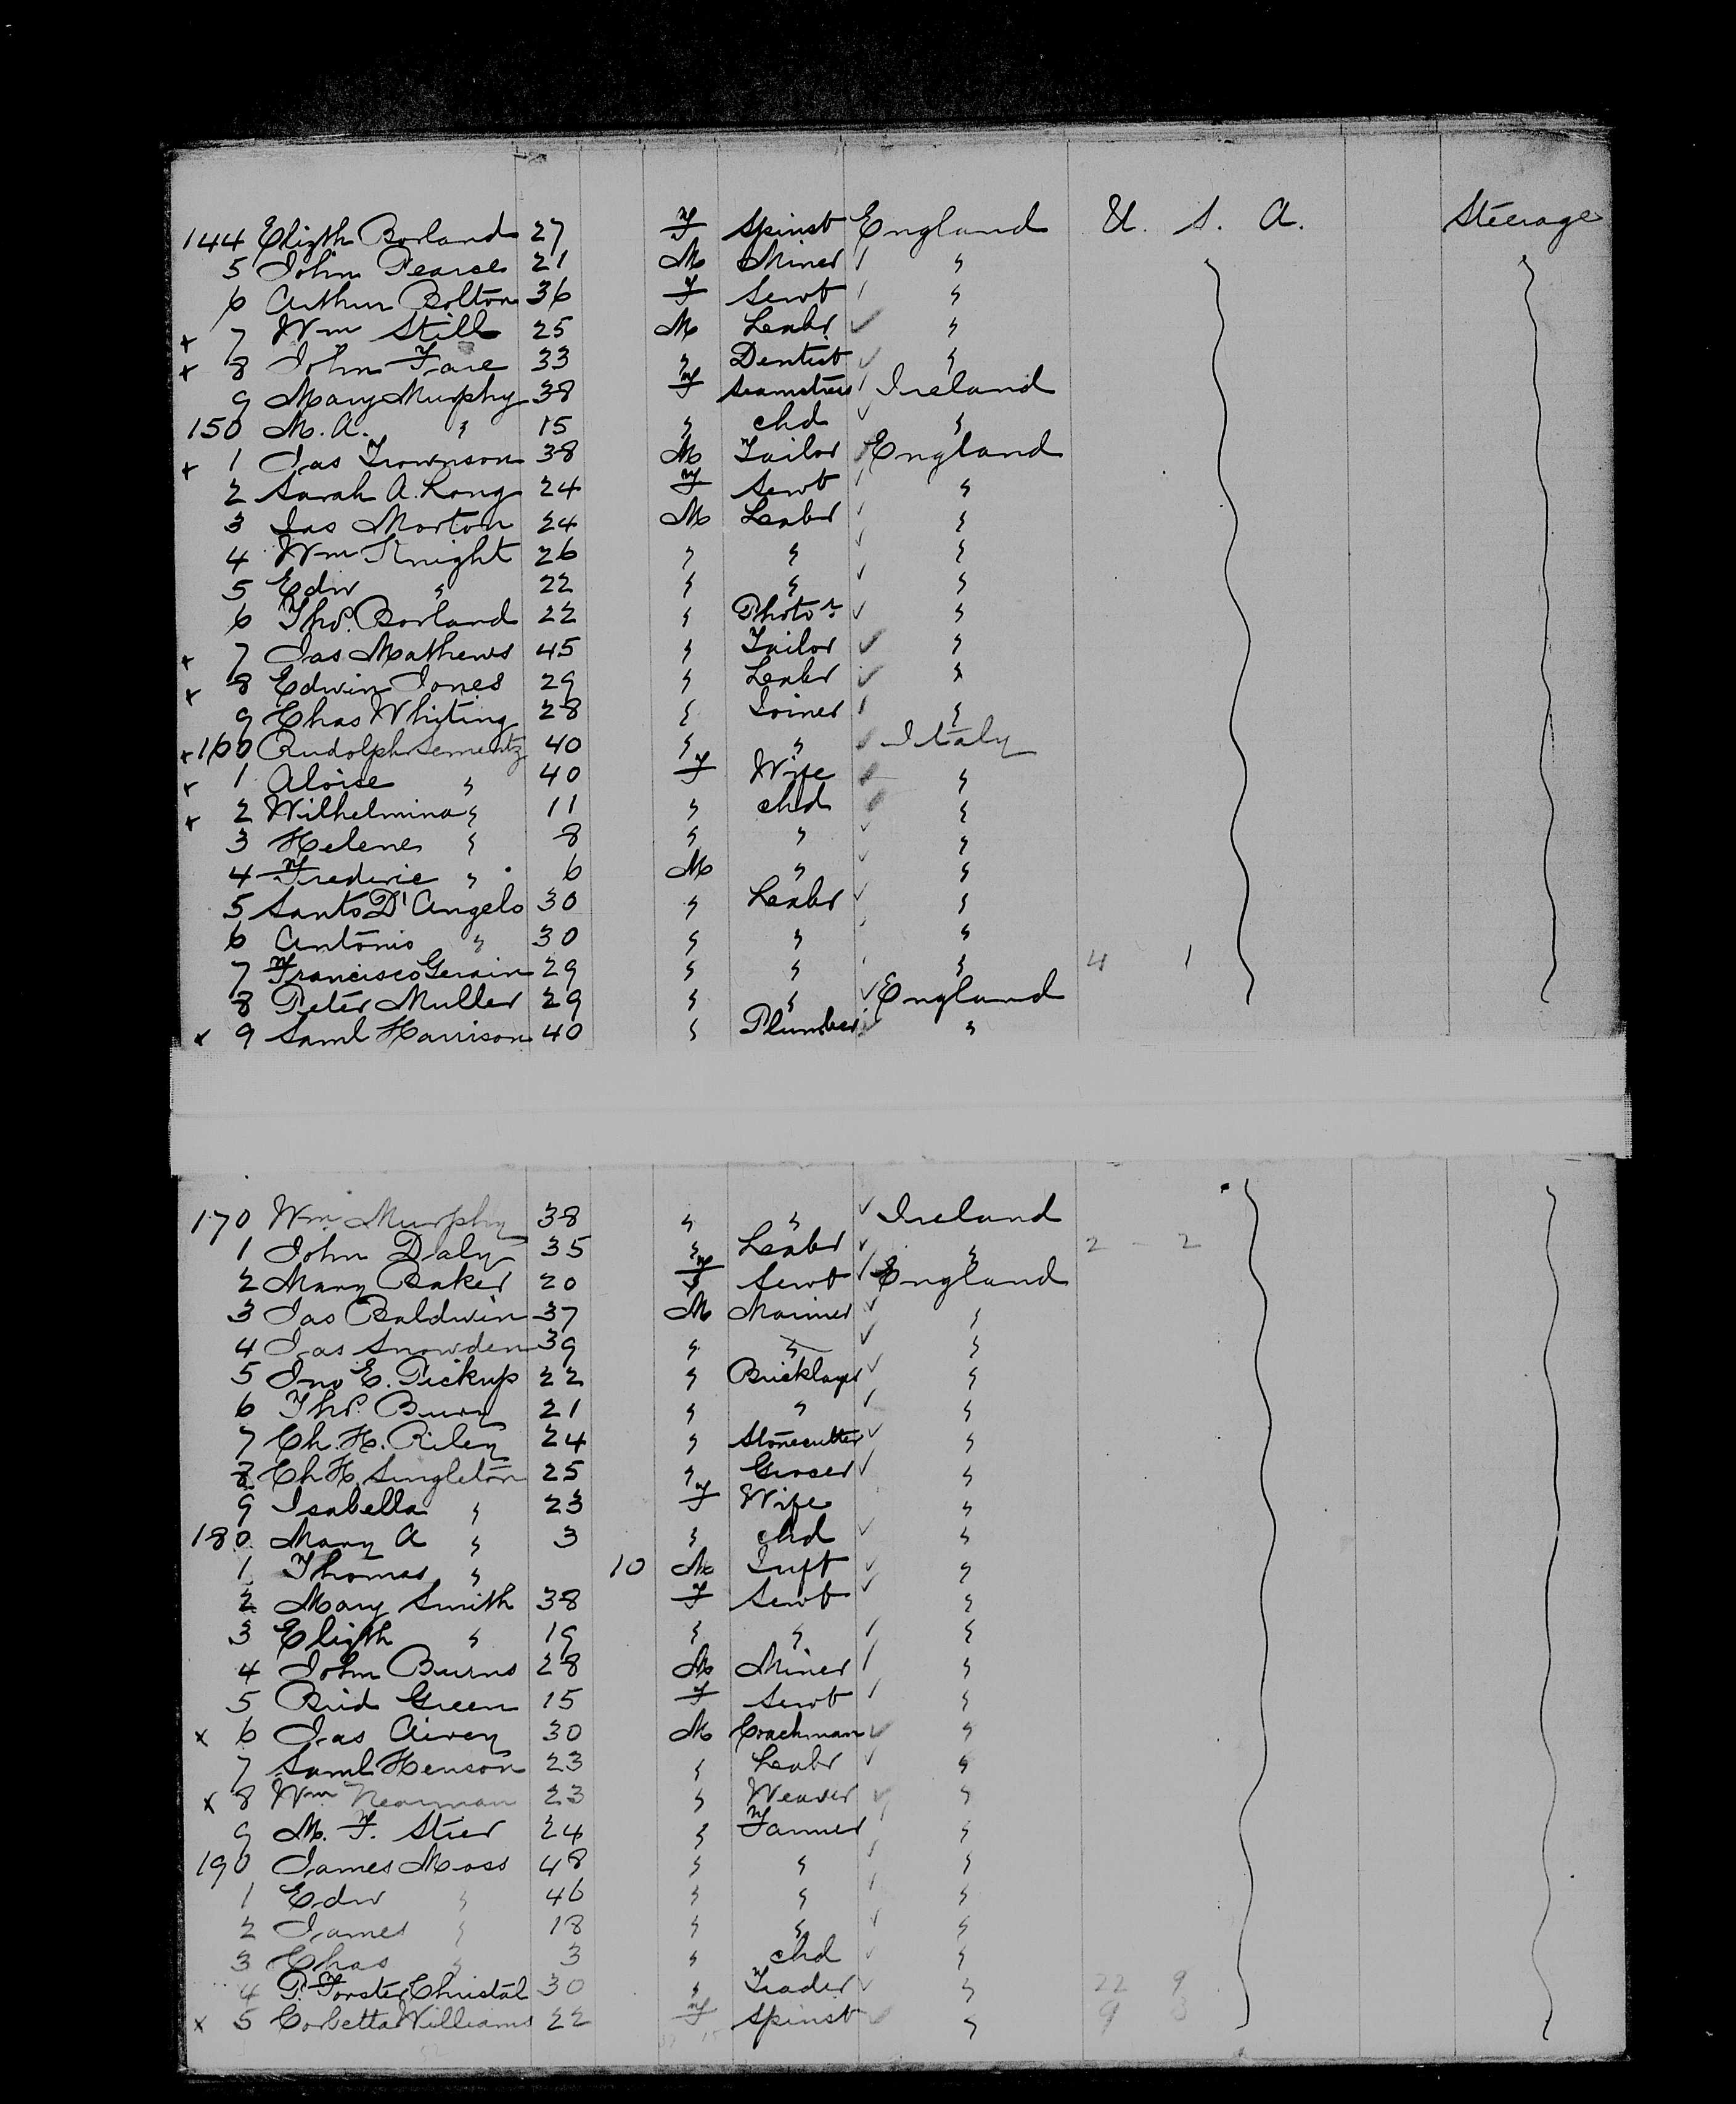 144 Elizth Borland 27 F Spinst England U. S. A. Steerage
5 John Pearce 21 M Miner "
6 Arthur Bolton 36 F Servt "
x 7 Wm Still 25 M Labr "
x 8 John Fare 33 " Dentist "
9 Mary Murphy 38 F Seamstress Ireland
150 M. A. " 15 " chd "
x 1 Jas Trownson 38 M Tailor England
2 Sarah A. Long 24 F Servt "
3 Jas Morton 24 M Labr "
4 Wm Knight 26 " " "
5 Edw " 22 " " "
6 Thos. Borland 22 " Photor "
x 7 Jas Mathews 45 " Tailor "
x 8 Edwin Jones 29 " Labr "
9 Chas Whiting 28 " Joiner "
x 160 Rudolph Sementz 40 " " Italy
x 1 Aloise " 40 F Wife "
x 2 Wilhelmina " 11 " chd "
3 Helene " 8 " " "
4 Frederic " 6 M " "
5 Santo D'Angelo 30 " Labr "
6 Antonio " 30 " " "
7 Francisco Gerain 29 " " " 4 1
8 Peter Muller 29 " " England
x 9 Saml Harrison 40 " Plumber "
170 Wm Murphy 38 " " Ireland
1 John Daly 35 " Labr " 2 - 2
2 Mary Baker 20 F Servt England
3 Jas Baldwin 37 M Mariner "
4 Jas Snowden 39 " " "
5 Jno E. Pickup 22 " Bricklayer "
6 Thos. Bury 21 " " "
7 Ch. H. Riley 24 " Stonecutter "
8 Ch H Singleton 25 " Groser "
9 Isabella " 23 F Wife "
180 Mary A " 3 " chd "
1 Thomas " 10 M Inft "
2 Mary Smith 38 F Servt "
3 Elizth " 19 " " "
4 John Burns 28 M Miner "
5 Brid Green 15 F Servt "
x 6 Jas Airey 30 M Coachman "
7 Saml Henson 23 " Labr "
x 8 Wm Nearman 23 " Weaver "
9 M. F. Stier 24 " Farmer "
190 James Moss 48 " " "
1 Edw " 46 " " "
2 James " 18 " " "
3 Chas " 3 " chd "
4 P. Forster Christal 30 " Trader " 22 9
x 5 Corbetta Williams 22 F Spinst " 9 3